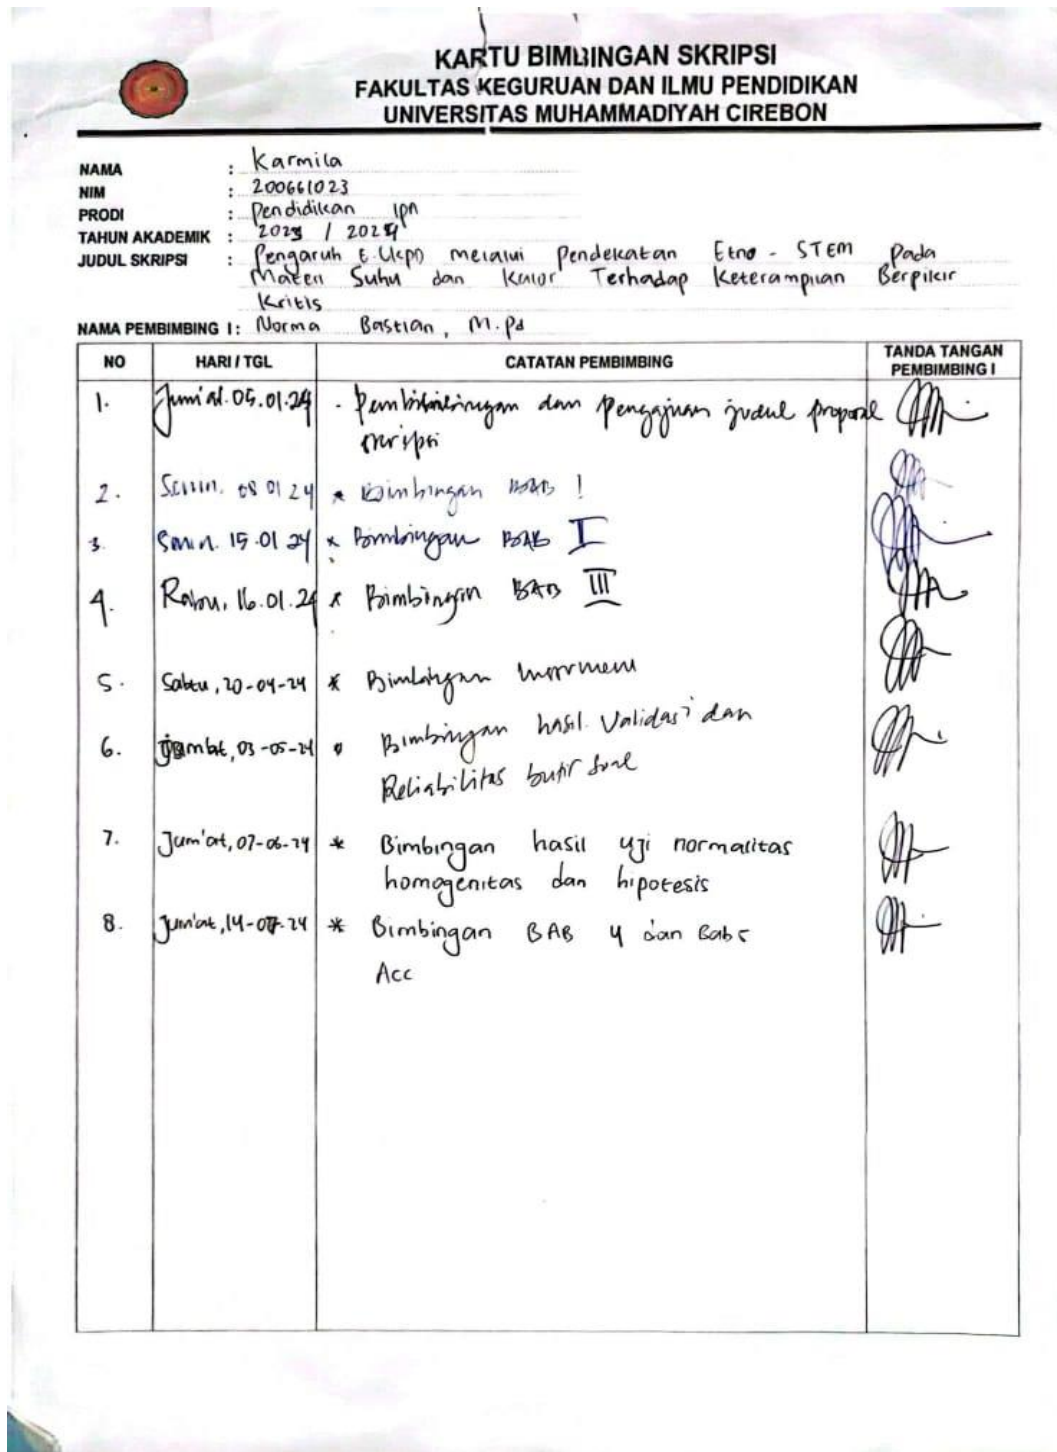 KARTU BIMBINGAN SKRIPSI
FAKULTAS KEGURUAN DAN ILMU PENDIDIKAN
UNIVERSITAS MUHAMMADIYAH CIREBON
NAMA : Karmila
NIM : 200661023
PRODI : Pendidikan IPA
TAHUN AKADEMIK : 2023 / 2024
JUDUL SKRIPSI : Pengaruh E-LKPD melalui Pendekatan Etno - STEM Pada
Materi Suhu dan Kalor Terhadap Keterampilan Berpikir
Kritis
NAMA PEMBIMBING I : Norma Bastian, M.Pd
NO HARI / TGL CATATAN PEMBIMBING TANDA TANGAN PEMBIMBING I
1. Jum'at. 05.01.24 - dan Pengajuan judul proposal
skripsi
2. Senin. 08 01 24 * Bimbingan BAB I
3. Senin. 15.01 24 * Bimbingan BAB I
4. Rabu, 16.01.24 * Bimbingan BAB III
5. Sabtu, 20-04-24 * Bimbingan
6. Jumat, 03-05-24 Bimbingan hasil Validasi dan
Reliabilitas butir soal
7. Jum'at, 07-06-24 * Bimbingan hasil uji normalitas
homogenitas dan hipotesis
8. Jum'at, * Bimbingan BAB 4 dan Bab 5
Acc